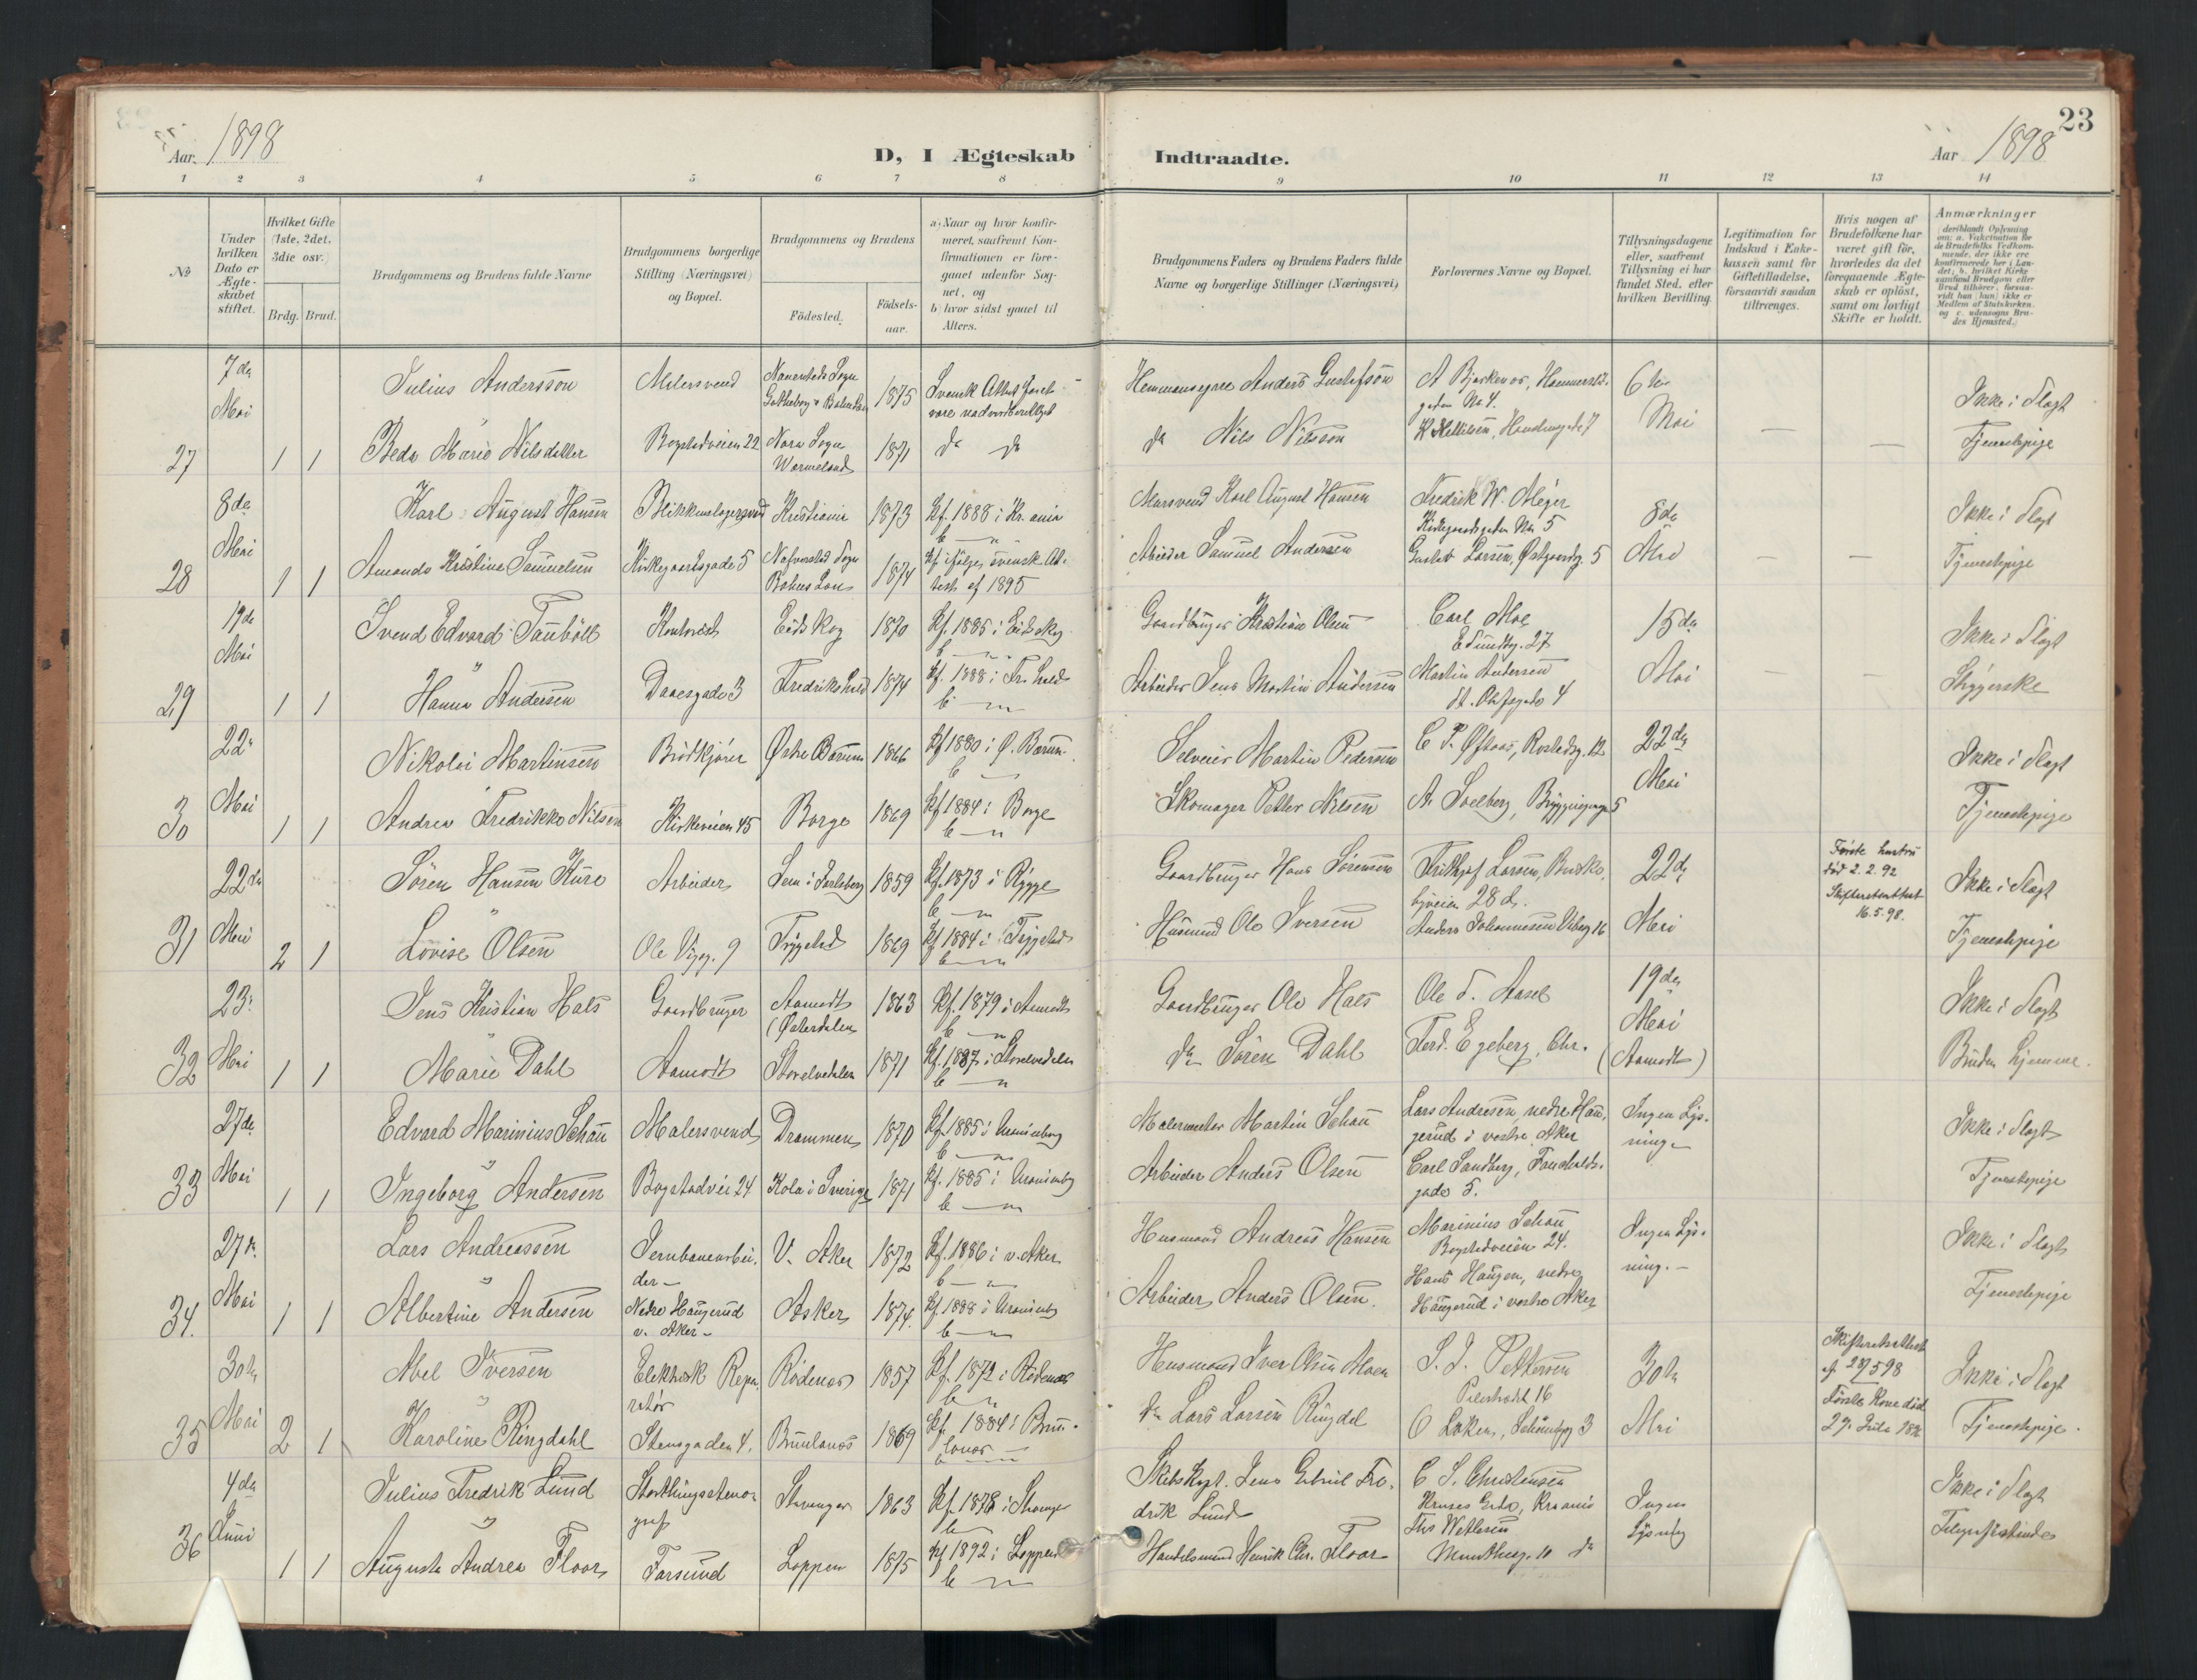 Aar. 1898
D, I Ægteskab
Indtraadte.
Aar 1898
23
1 2 3 4 5 6 7 8 9 10 11 12 13 14
No
Under hvilken Dato er Ægteskabet stiftet.
Hvilket Gifte (1ste, 2det, 3die osv.)
Brdg. Brud.
Brudgommens og Brudens fulde Navne
Brudgommens borgerlige Stilling (Næringsvei) og Bopæl.
Brudgommens og Brudens
Födested.
Födsels-aar.
a) Naar og hvor konfirmeret, saafremt Konfirmationen er foregaaet udenfor Sognet, og
b) hvor sidst gaaet til Alters.
Brudgommens Faders og Brudens Faders fulde Navne og borgerlige Stillinger (Næringsvei)
Forlovernes Navne og Bopæl.
Tillysningsdagene eller, saafremt Tillysning ei har fundet Sted, efter hvilken Bevilling.
Legitimation for Indskud i Enkekassen samt for Giftetilladelse, forsaavidt saadan tiltrænges.
Hvis nogen af Brudefolkene har været gift för, hvorledes da det foregaaende Ægteskab er oplöst, samt om lovligt Skifte er holdt.
Anmærkninger
27
7de Mai
1 1
Julius Andersson
Malersvend
1875
Hemmansegare Anders Gustafson
6te Mai
Ikke i Slægt
Beda Marie Nilsdatter
Bogstadveien 22
Nora Sogn Wermeland
1871
do do
do Nils Nilsson
Tjenestepige
28
8de Mai
1 1
Karl August Hansen
Blikkenslagersvend
Kristiania
1873
Kf. 1888 i Kr.ania
Murersvend Karl August Hansen
Fredrik W. Meyer
Kirkegaardsgaden No 5
8de Mai
Ikke i Slægt
Amanda Kristine Samuelsen
Kirkegaardsgade 5
1874
Kf. ifølge svensk Attest af 1895
Arbeider Samuel Andersen
Gustav Larsen, Østgaardsg. 5
Tjenestepige
29
19de Mai
1 1
Svend Edvard Tauböll
Kontorist
Eidskog
1870
Kf. 1885 i Eidskog
Gaardbruger Kristian Olsen
Carl Moe
E. Sundtsg. 27
15de Mai
Ikke i Slægt
Hanna Andersen
Daaesgade 3
Fredrikshald
1874
Kf. 1888 i Fr.hald
Arbeider Jens Martin Andersen
Martin Andersen
St. Olafsgade 4
Strygerske
30
22de Mai
1 1
Nikolai Martinsen
Brödkjörer
Østre Bærum
1866
Kf 1880 i Ø. Bærum
Selveier Martin Pedersen
22de Mai
Ikke i Slægt
Andrea Fredrikke Nilsen
Kirkeveien 45
Borge
1869
Kf 1884 i Borge
Skomager Petter Nilsen
A. Soelberg, 5
Tjenestepige
31
22de Mai
2 1
Sören Hansen Kure
Arbeider
Sem i Jarlsberg
1859
Kf. 1873 i Rygge
Gaardbruger Hans Sörensen
Frithjof Larsen
22de Mai
Første hustru
död 2.2.92
Skifteretsattest
16.5.98.
Ikke i Slægt
Lovise Olsen
Ole Vigsg. 9
Trygstad
1869
Kf 1884 i Trygstad
Husmand Ole Iversen
Anders Johannesen Vibesg 16
Tjenestepige
32
23de Mai
1 1
Jens Kristian Hals
Gaardbruger
Aamodt
(Østerdalen
1863
Kf. 1879 i Aamodt
Gaardbruger Ole Hals
Ole T. Aasel
19de Mai
(Aamodt)
Ikke i Slægt
Marie Dahl
Aamodt
Storelvedalen
1871
Kf. 1887 i Storelvedalen
do Sören Dahl
Ferd. Egeberg, Chr.
Bruden hjemme.
33
27de Mai
1 1
Edvard Marinius Schau
Malersvend
Drammen
1870
Kf. 1885 i Uranienborg
Malermester Martin Schau
Lars Andresen, nedre Haugerud i vestre Aker
Ingen Lysning
Ikke i Slægt
Ingeborg Andersen
Bogstadvei 24
Kola i Sverige
1871
Kf. 1885 i Uranienbg
Arbeider Anders Olsen
Carl Sandberg, Fauchaldsgade 5.
Tjenestepige
34.
27de Mai
1 1
Lars Andreassen
Jernbanearbeider
V. Aker
1872
Kf. 1886 i v. Aker
Husmand Andreas Hansen
Marinius Schau
Bogstadveien 24.
Ingen Lysning.
Ikke i Slægt
Albertine Andersen
Nedre Haugerud
v. Aker
Asker
1874.
Kf. 1888 i Uranienbg
Arbeider Anders Olsen
Hans Haugen, nedre
Haugerud i vestre Aker
Tjenestepige
35
30te Mai
2 1
Abel Iversen
Elektrisk Reparatör
Rödenæs
1857
Kf. 1872 i Rödenæs
Husmand Iver Olsen Moen
S. J. Pettersen
Pilestrædet 16
30te Mai
Skifteretsattest
af 28/5 98
Første Kone död
Ikke i Slægt
Karoline Ringdahl
Stensgaden 4.
Brunlanæs
1869
Kf. 1884 i Brunlanæs
do Lars Larsen Ringdal
O Løken, 3
Tjenestepige.
36
4de Juni
1 1
Julius Fredrik Lund
Storthingsstenograf
Stavanger
1863
Kf. 1878 i Stavanger
Skibskapt. Jens Gabriel Fredrik Lund
C. S. Christensen
Ingen Lysning
Ikke i Slægt
Augusta Andrea Floor
Farsund
Loppen
1875
Kf 1892 i Loppen
Handelsmand Henrik Chr. Floor
Munthesg. 10 do
Telegrafistinde